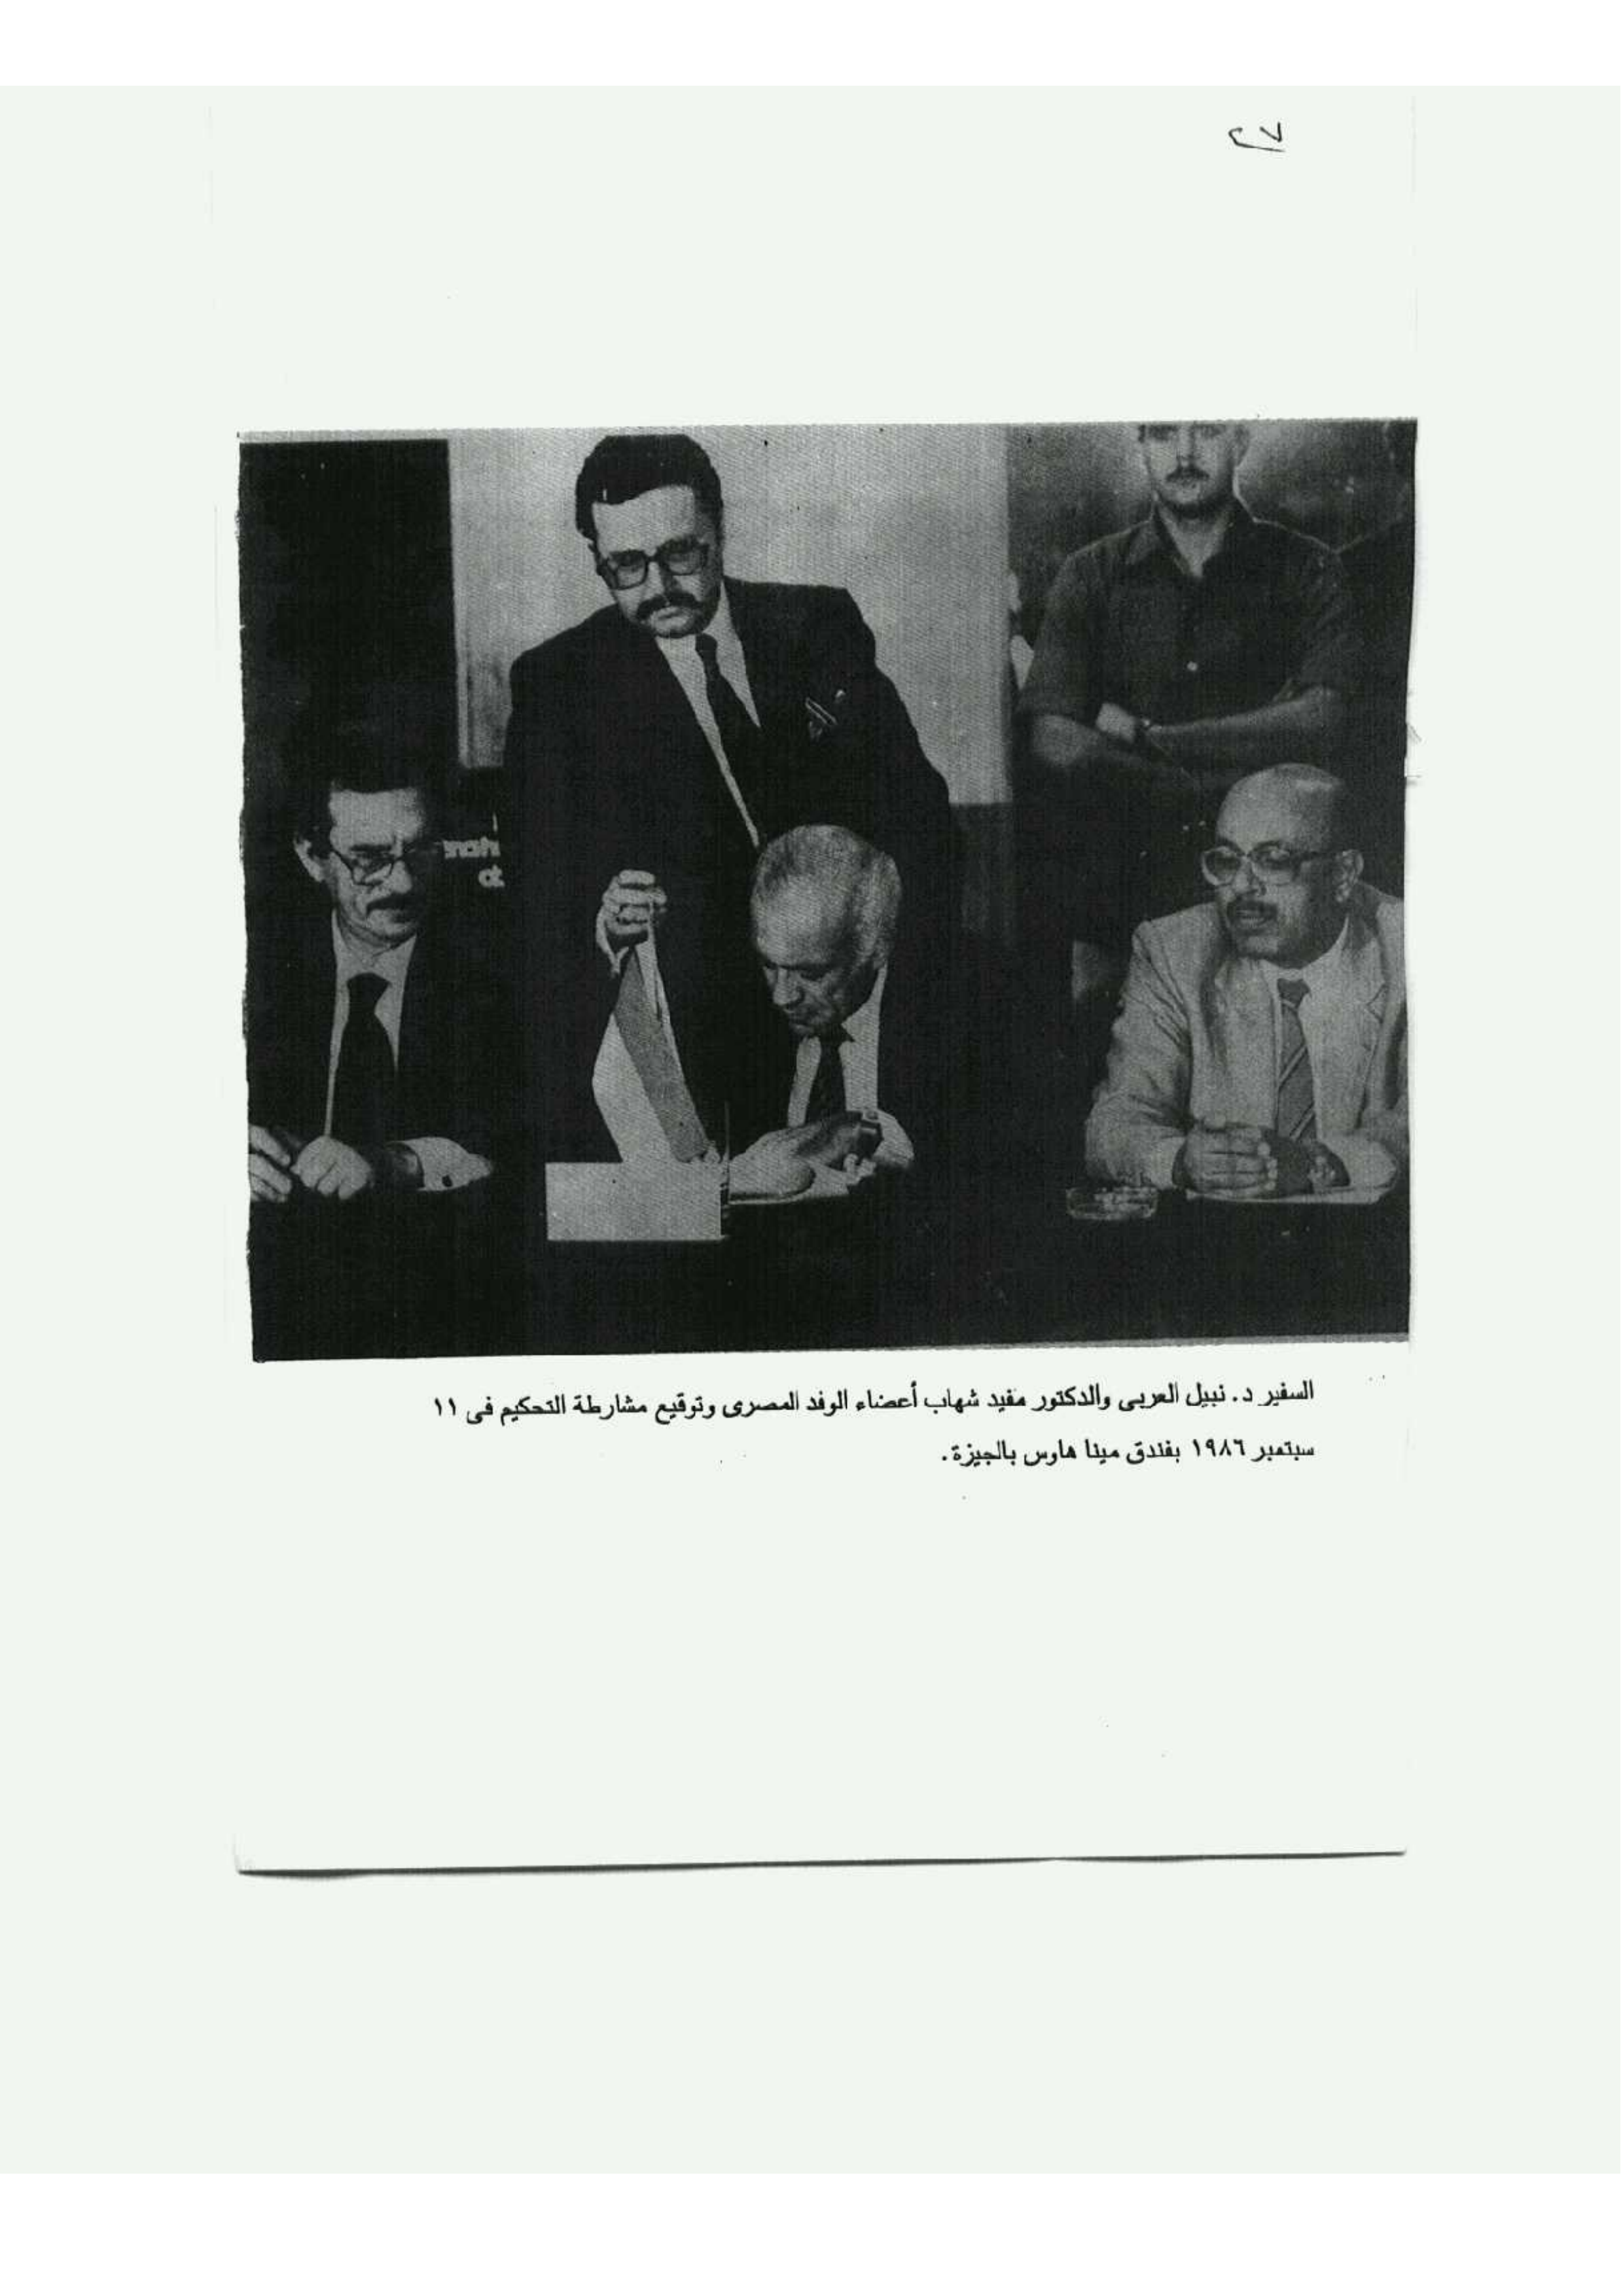 السفير د. نبيل العربى والدكتور مفيد شهاب أعضاء الوفد المصرى وتوقيع مشارطة التحكيم فى ١١
سبتمبر ١٩٨٦ بفندق مينا هاوس بالجيزة.